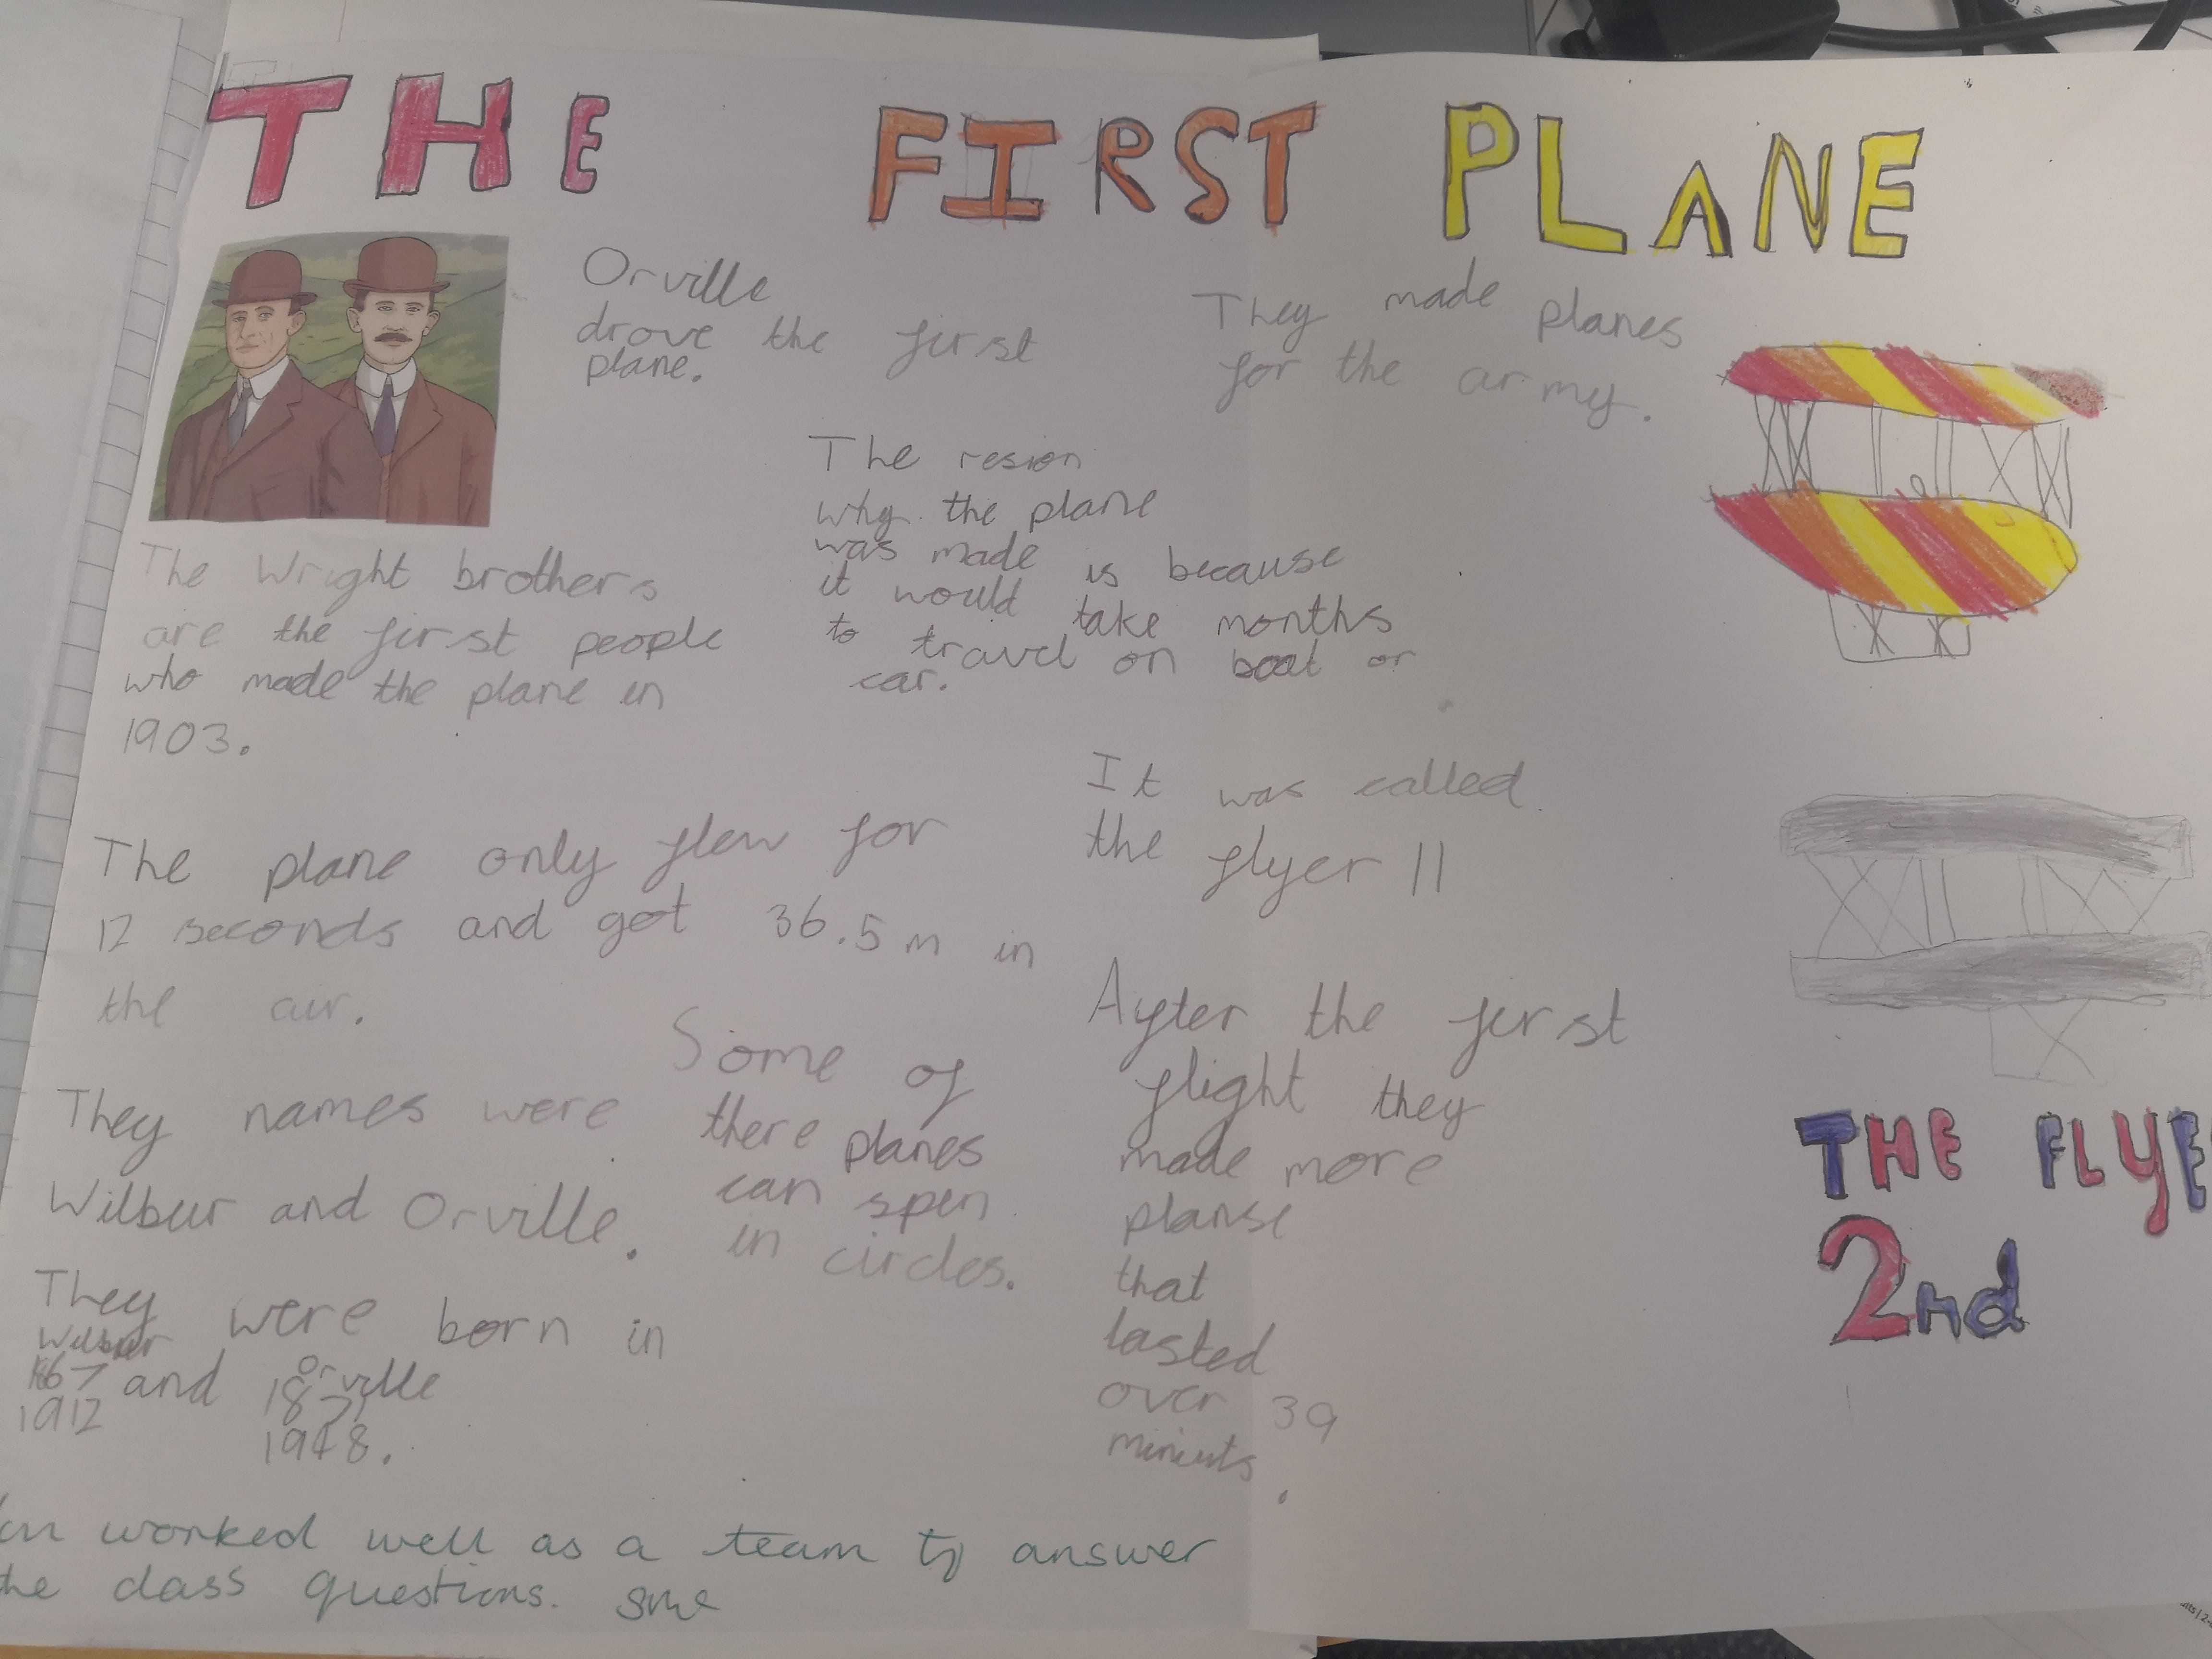 THE FIRST PLANE
Orville
drove the first
plane.
They made planes
for the army.
The resion
why the plane
was made is because
it would take months
to travel on boat or
car.
The Wright brothers
are the first people
who made the plane in
1903.
It was called
the flyer 11
The plane only flew for
12 seconds and got 36.5m in
the air.
After the first
flight they
made more
planse
that
lasted
over 39
miniuts.
Some of
there planes
can spen
in circles.
They names were
Wilbur and Orville.
They were born in
Wilbur
1867 and Orville
1912 1871
1948.
THE FLYE
2nd
worked well as a team to answer
the class questions.